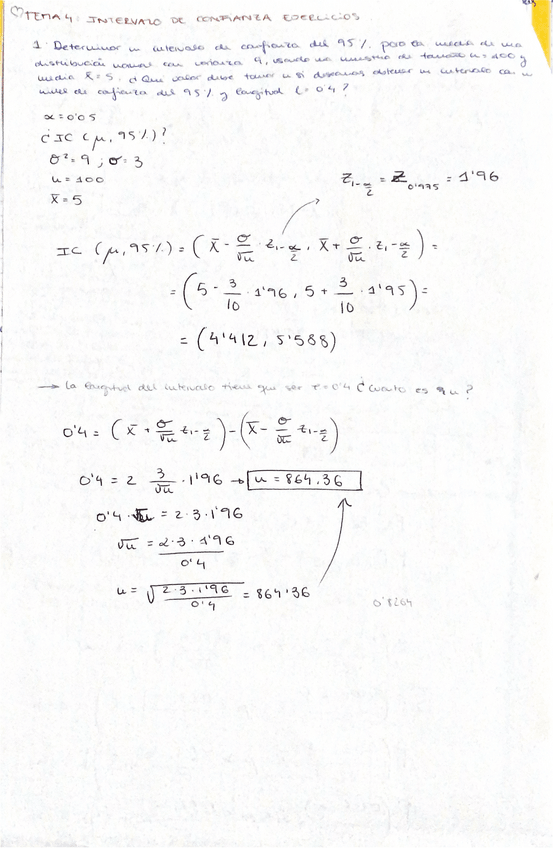 ♡TEMA 4: INTERVALO DE CONFIANZA EJERCICIOS
1. Determinar un intervalo de confianza del 95% para la media de una
distribución normal con varianza 9, usando una muestra de tamaño n=100 y
media x̄=5. ¿Que valor debe tomar n si deseamos obtener un intervalo con un
nivel de confianza del 95% y longitud l=0'4?
α=0'05
¿IC (μ,95%)?
σ²=9 ; σ=3
n=100
x̄=5
Z_{1-α/2} = Z_{0'975} = 1'96
IC (μ,95%) = (x̄ - σ/√n · z_{1-α/2}, x̄ + σ/√n · z_{1-α/2}) =
= (5 - 3/10 · 1'96, 5 + 3/10 · 1'95) =
= (4'412, 5'588)
→ La longitud del intervalo tiene que ser l=0'4 ¿Cuanto es n?
0'4 = (x̄ + σ/√n z_{1-α/2}) - (x̄ - σ/√n z_{1-α/2})
0'4 = 2 3/√n · 1'96 → n = 864.36
0'4 · √n = 2·3·1'96
√n = 2·3·1'96/0'4
n = √(2·3·1'96/0'4) = 864'36
0'8264